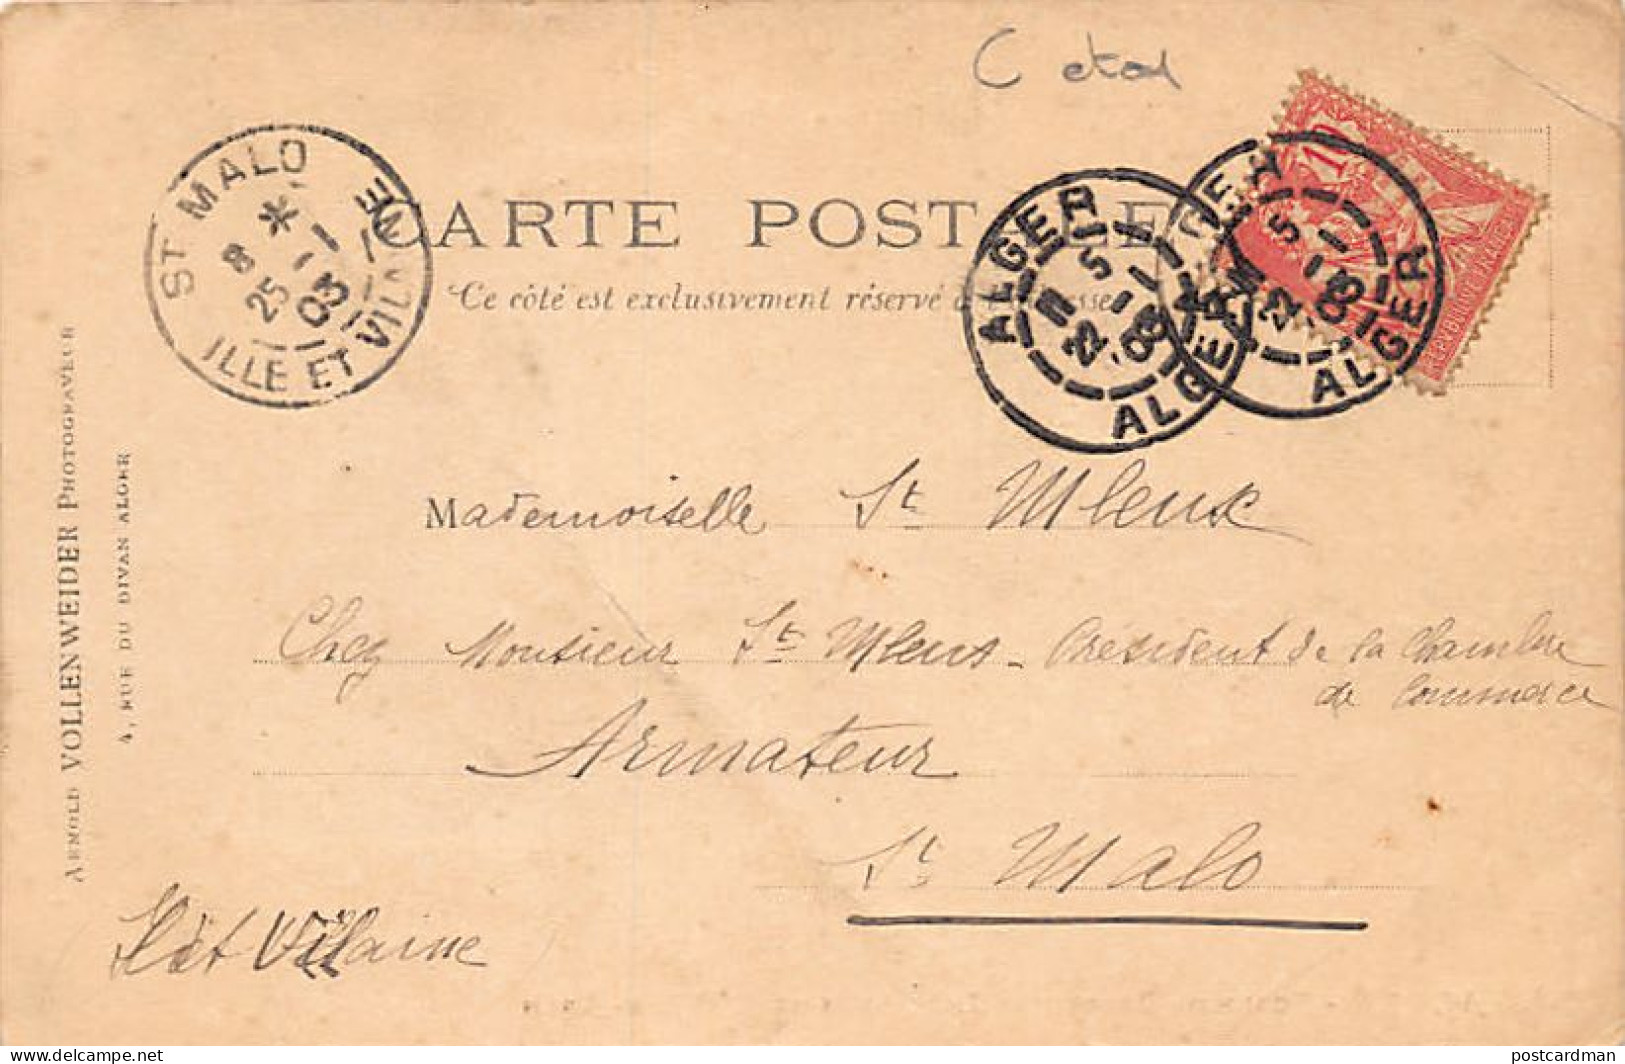 C etat
ST MALO
8 *
25 -1
03
ILLE ET VILAINE
CARTE POSTALE
Ce côté est exclusivement réservé à l'adresse
ALGER
5
22 -1
03
ALGER
ALGER
5
22 -1
03
ALGER
REPUBLIQUE FRANCAISE
ARNOLD VOLLENWEIDER PHOTOGRAVEUR
4, RUE DU DIVAN ALGER
Mademoiselle St Mleux
Chez Monsieur St Mleux - Président de la Chambre
de Commerce
Armateur
St Malo
Ile et Vilaine
delcampe.net
postcardman